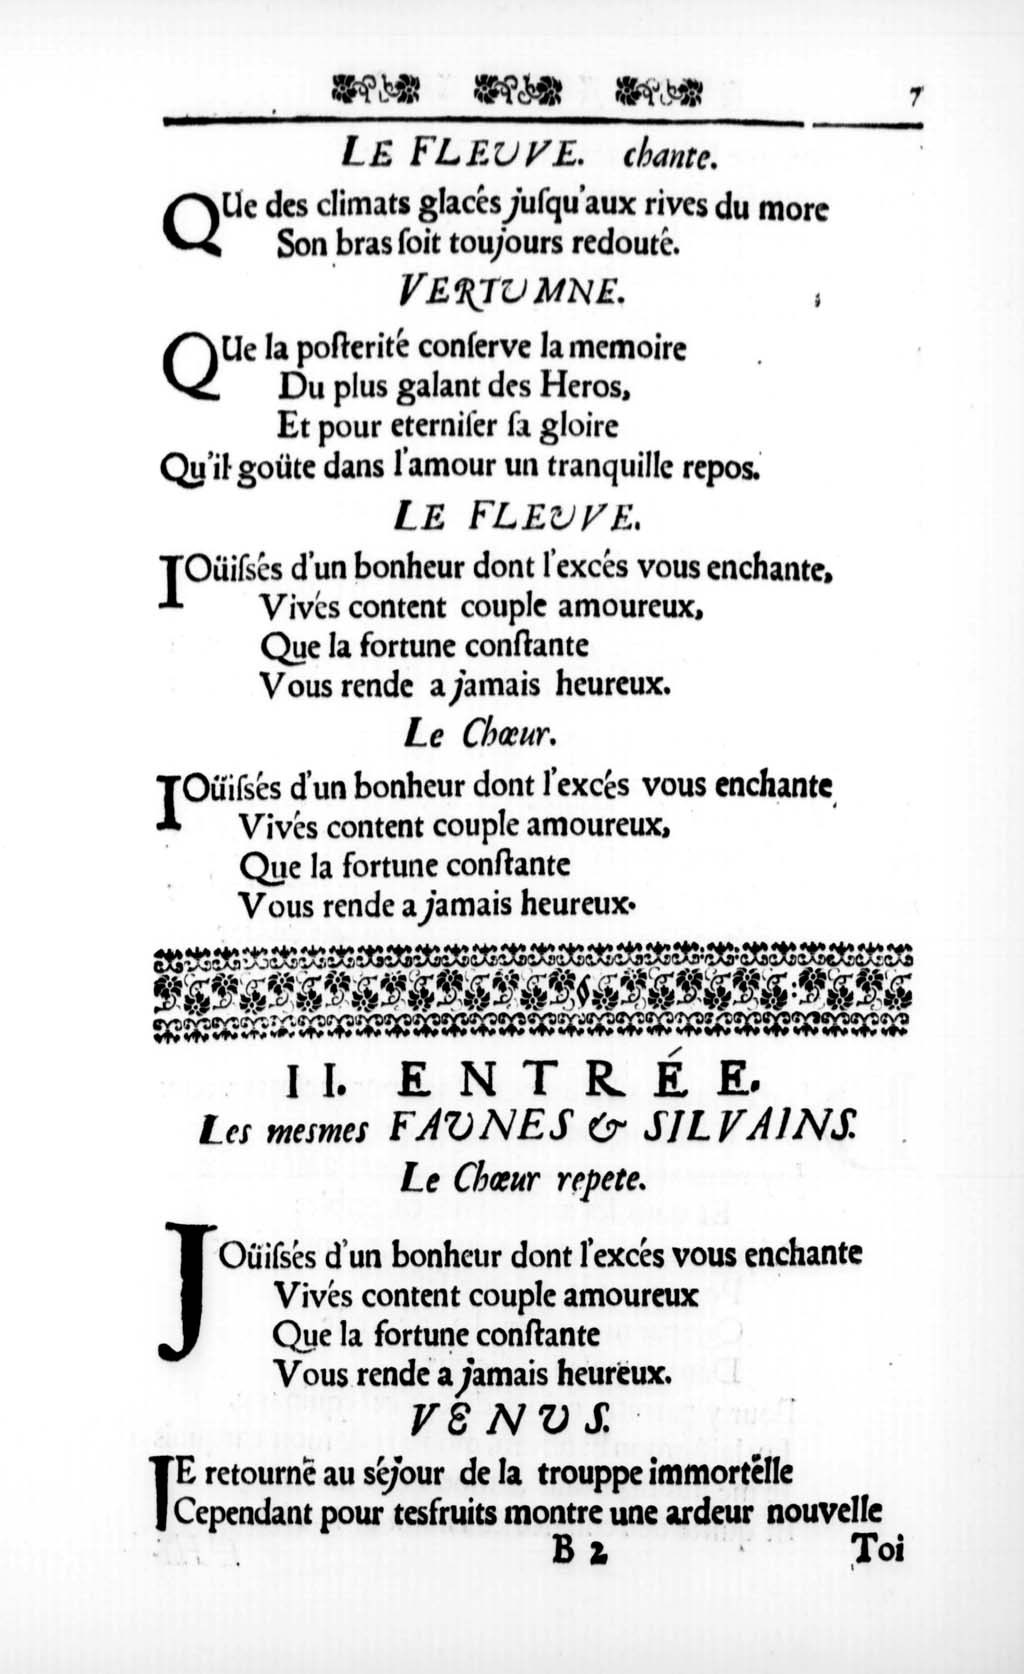 7
LE FLEUVE. chante.
QUe des climats glacés juſqu'aux rives du more
Son bras ſoit toujours redouté.
VERTUMNE.
QUe la poſterité conſerve la memoire
Du plus galant des Heros,
Et pour eterniſer ſa gloire
Qu'il goüte dans l'amour un tranquille repos.
LE FLEUVE.
IOüiſsés d'un bonheur dont l'excés vous enchante,
Vivés content couple amoureux,
Que la fortune conſtante
Vous rende a jamais heureux.
Le Chœur.
IOüiſsés d'un bonheur dont l'excés vous enchante
Vivés content couple amoureux,
Que la fortune conſtante
Vous rende a jamais heureux.
II. ENTRÉE.
Les mesmes FAUNES & SILVAINS.
Le Chœur repete.
JOüiſsés d'un bonheur dont l'excés vous enchante
Vivés content couple amoureux
Que la fortune conſtante
Vous rende a jamais heureux.
VENUS.
IE retourne au séjour de la trouppe immortelle
Cependant pour tesfruits montre une ardeur nouvelle
B 2 Toi